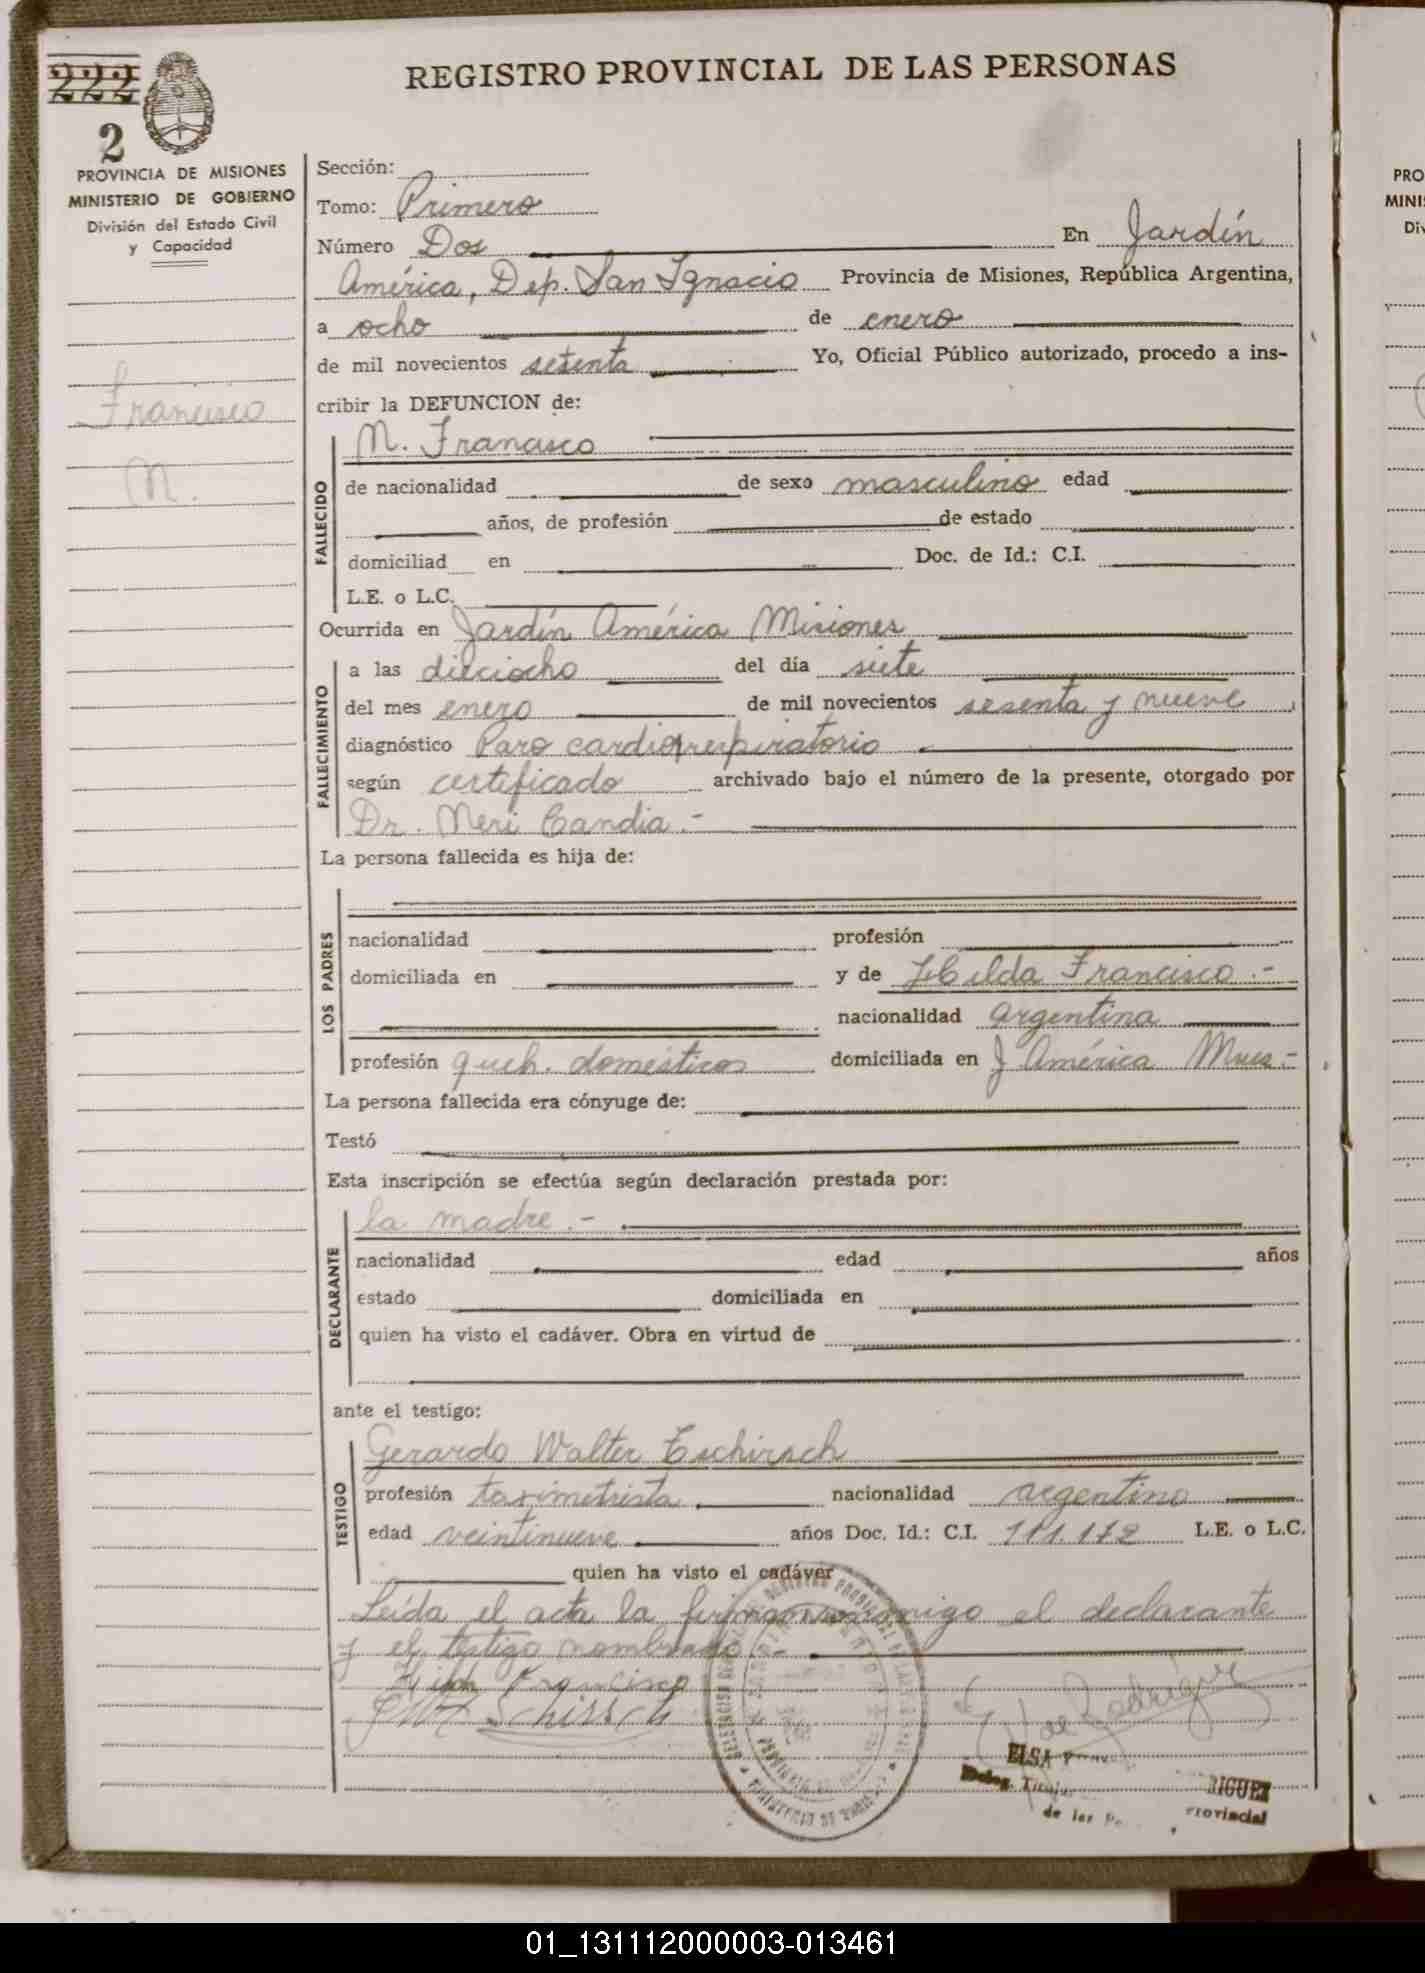 222
2
REGISTRO PROVINCIAL DE LAS PERSONAS
PROVINCIA DE MISIONES
MINISTERIO DE GOBIERNO
División del Estado Civil
y Capacidad
Francisco
N.
Sección:
Tomo: Primero
Número Dos En Jardín
América, Dep. San Ignacio Provincia de Misiones, República Argentina,
a ocho de enero
de mil novecientos setenta Yo, Oficial Público autorizado, procedo a ins-
cribir la DEFUNCION de:
FALLECIDO
N. Francisco
de nacionalidad de sexo masculino edad
años, de profesión de estado
domiciliad en Doc. de Id.: C.I.
L.E. o L.C.
Ocurrida en Jardín América Misiones
FALLECIMIENTO
a las dieciocho del día siete
del mes enero de mil novecientos sesenta y nueve
diagnóstico Paro cardiorrespiratorio
según certificado archivado bajo el número de la presente, otorgado por
Dr. Neri Candia.-
La persona fallecida es hija de:
LOS PADRES
nacionalidad profesión
domiciliada en y de Hilda Francisco.-
nacionalidad argentina
profesión queh. domésticos domiciliada en J. América Mnes.-
La persona fallecida era cónyuge de:
Testó
Esta inscripción se efectúa según declaración prestada por:
DECLARANTE
la madre.-
nacionalidad edad años
estado domiciliada en
quien ha visto el cadáver. Obra en virtud de
ante el testigo:
TESTIGO
Gerardo Walter Tschirsch
profesión taximetrista nacionalidad argentino
edad veintinueve años Doc. Id.: C.I. 111.172 L.E. o L.C.
quien ha visto el cadáver
Leída el acta la firman conmigo el declarante
y el testigo nombrado.-
Francisco
de Rodríguez
ELSA
RIGUEZ
Deleg. Titular
de las
Provincial
PRO
MINI
Div
01_131112000003-013461